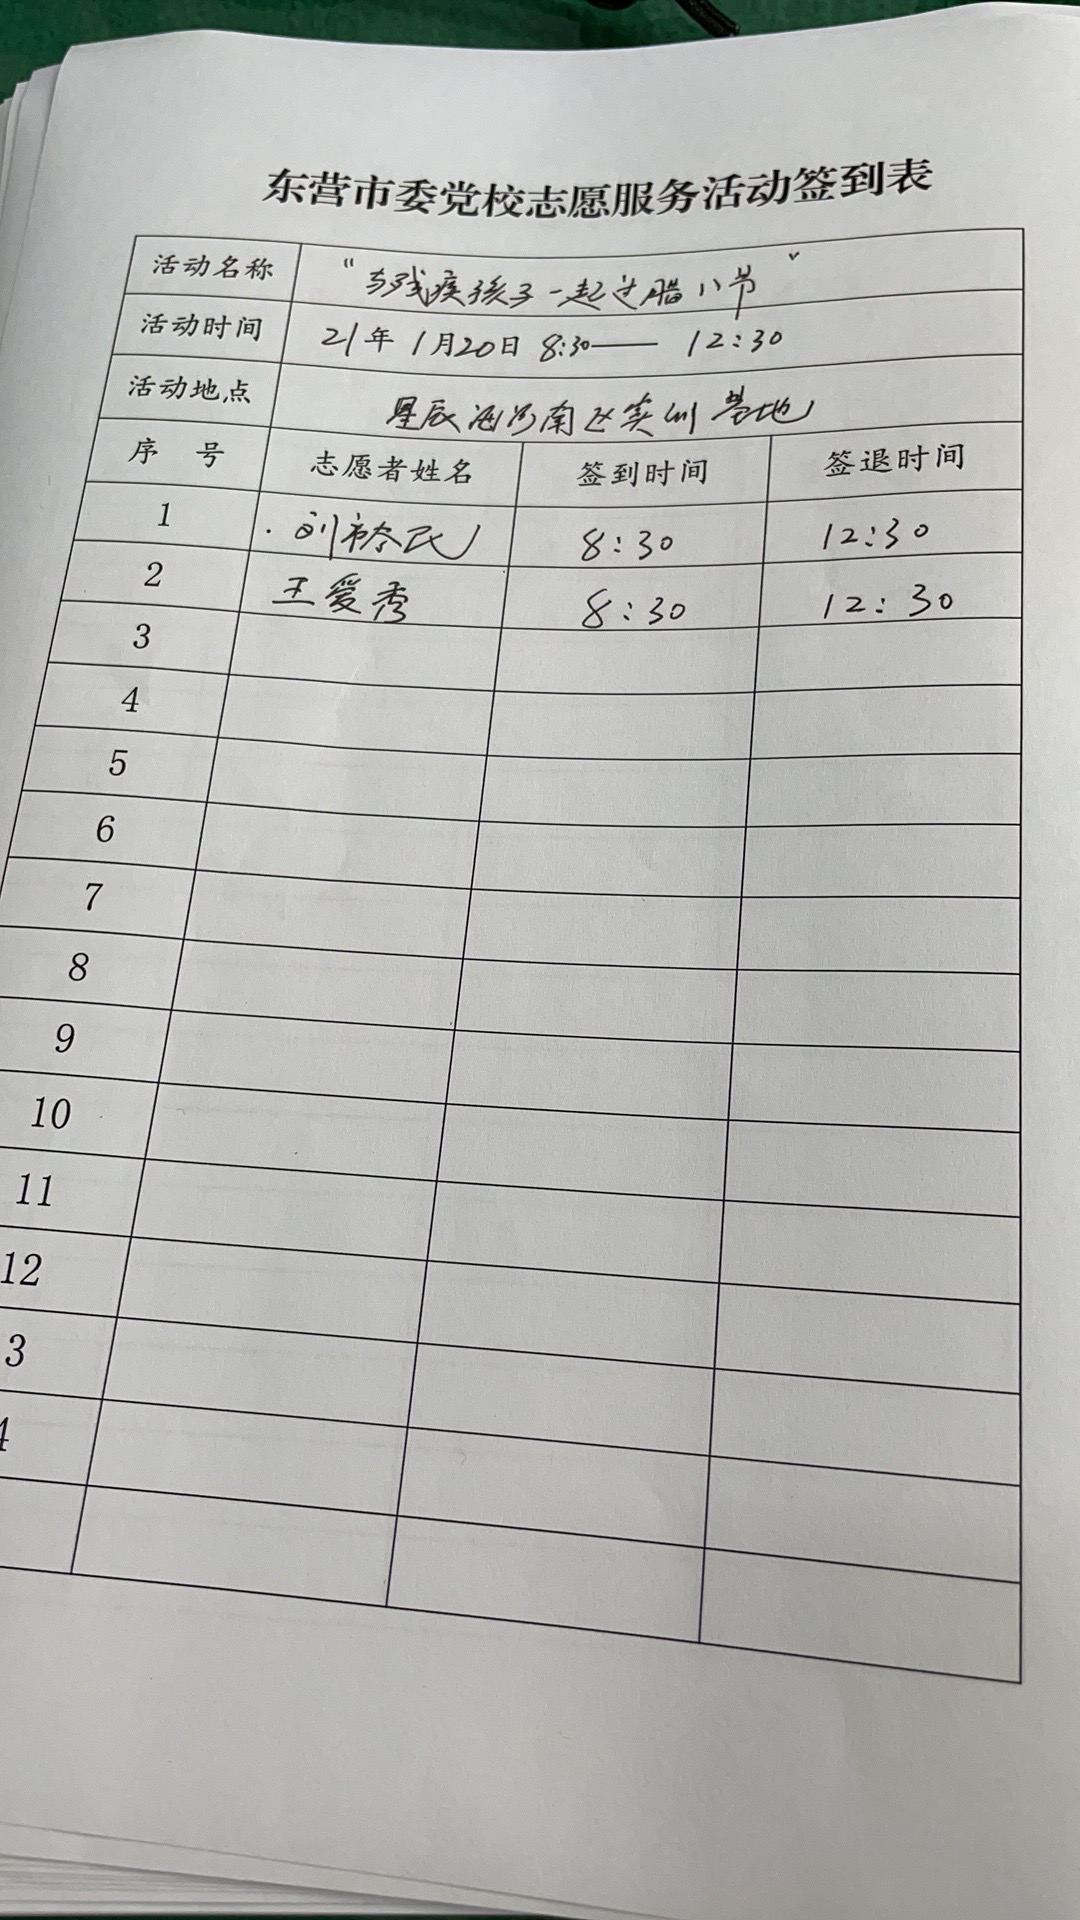 东营市委党校志愿服务活动签到表
活动名称 “与残疾孩子一起过腊八节”
活动时间 21年1月20日 8:30—— 12:30
活动地点 星辰海河南区实训基地
序号 志愿者姓名 签到时间 签退时间
1 刘 民 8:30 12:30
2 王爱秀 8:30 12:30
3
4
5
6
7
8
9
10
11
12
3
4